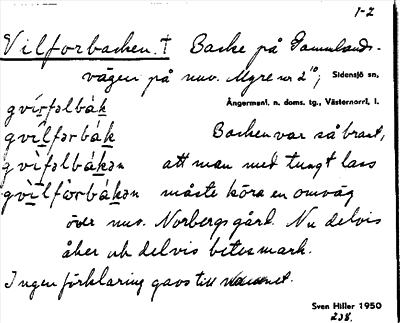 1-2
Vilforbacken. † Backe på Gammlands-
vägen på nuv. Myre nr 2¹⁰; Sidensjö sn,
gvírfəlbák Ångermanl. n. doms. tg., Västernorrl. l.
gvílfərbák Backen var så brant,
gvìfəlbákən att man med tungt lass
gvìlfərbákən måste köra en omväg
över nuv. Norbergs gård. Nu delvis
åker och delvis betesmark.
Ingen förklaring gavs till namnet.
Sven Hiller 1950
238.